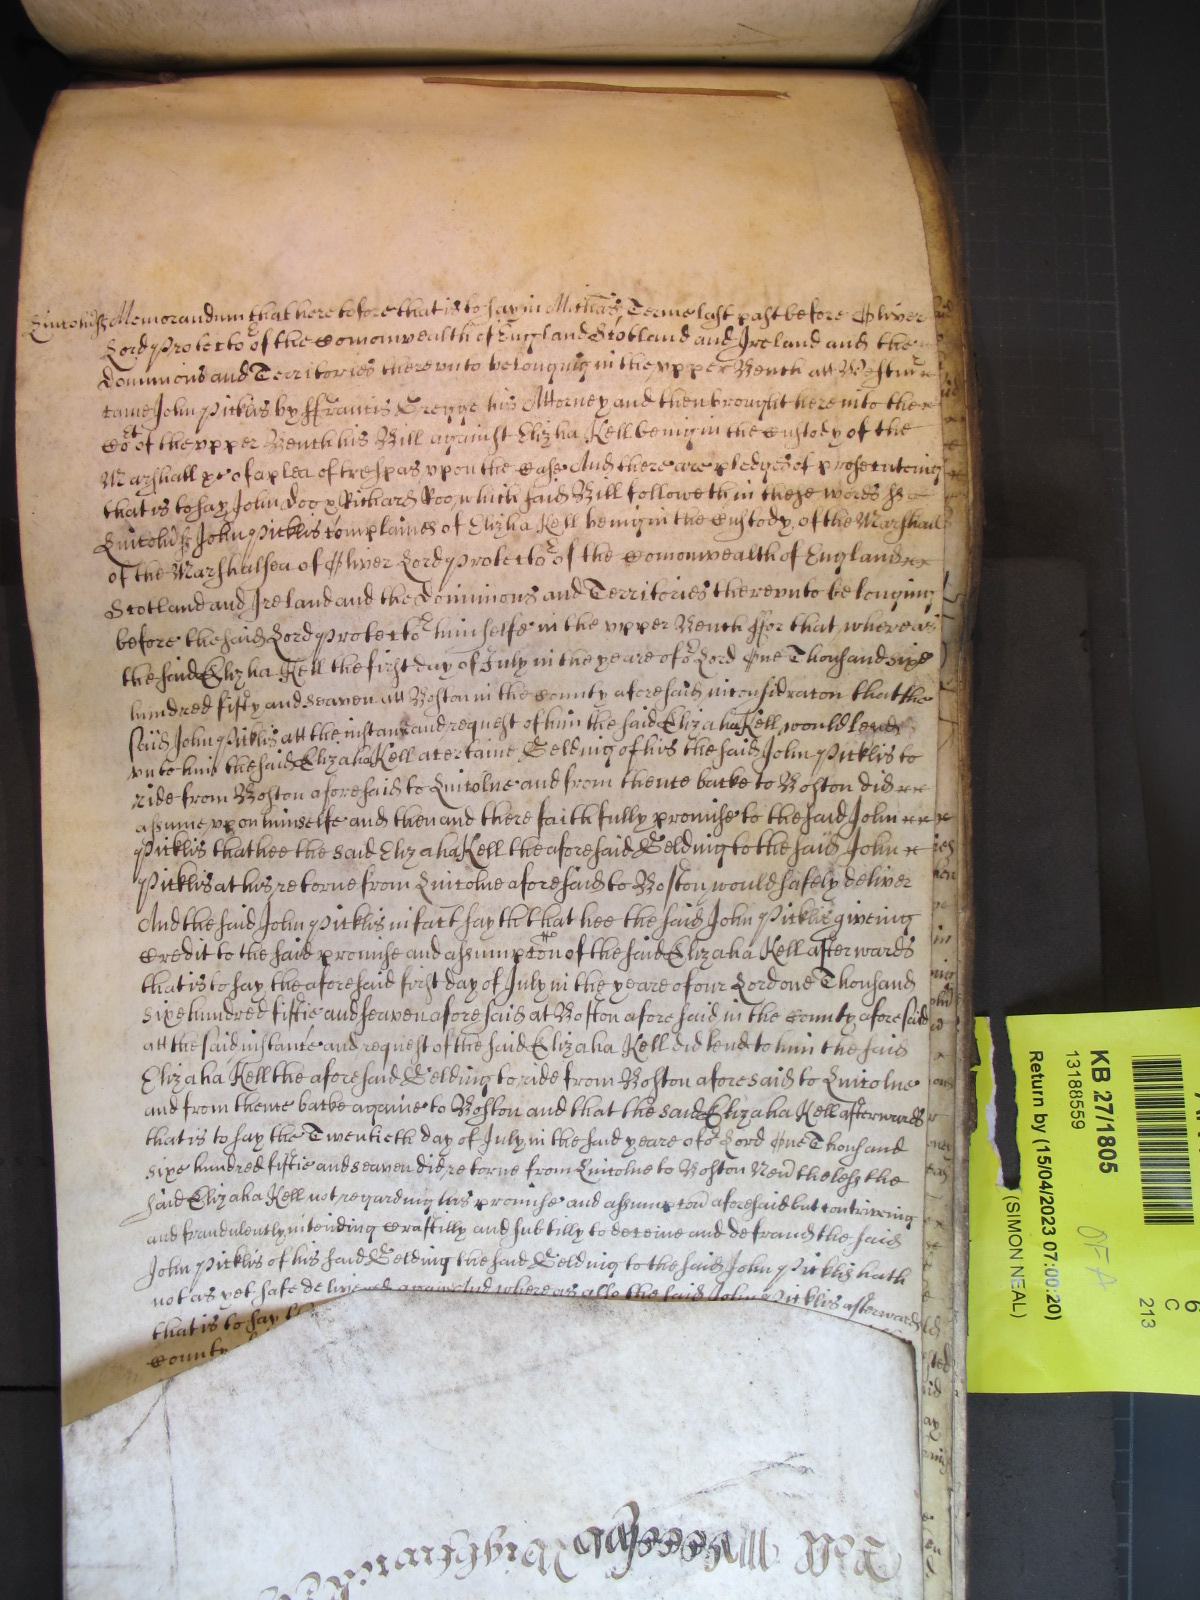 Lincolns̃h Memorandum that heretofore that is to say in Michãs Terme last past before Oliver
Lord Protector of the Comonwealth of England Scotland and Ireland and the
Dominions and Territories thereunto belonging in the upper Bench att Westmr
came John Picklis by ffrancis Gregge his Attorney and then brought here into the
Cort of the upper Bench his Bill against Elizha Kell being in the Custody of the
Marshall &c of a plea of trespas upon the Case And there are pledges of prosecuteing
that is to say John Doo & Richard Roo, which said Bill followeth in these words ss
Lincolns̃h John Picklis complaines of Elizha Kell being in the Custody, of the Marshall
of the Marshalsea of Oliver Lord Protector of the Comonwealth of England
Scotland and Ireland and the Dominions and Territories thereunto belonging
before the said Lord Protector himselfe in the upper Bench ffor that, whereas
the said Elizha Kell the first day of July in the yeare of or Lord One Thousand sixe
hundred fifty and seaven att Boston in the County aforesaid in considraton that the
said John Picklis att the instance and request of him the said Elizaha Kell, would lend
unto him the said Elizaha Kell a certaine Gelding of his the said John Picklis to
ride from Boston aforesaid to Lincolne and from thence backe to Boston did
assume upon himselfe and then and there faithfully promise to the said John
Picklis that hee the said Elizaha Kell the aforesaid Gelding to the said John
Picklis at his retorne from Lincolne aforesaid to Boston would safely deliver
And the said John Picklis in fact sayth that hee the said John Picklis giveing
Credit to the said promise and assumpton of the said Elizaha Kell afterwards
that is to say the aforesaid first day of July in the yeare of our Lord one Thousand
sixe hundred fiftie and seaven aforesaid at Boston aforesaid in the County aforesaid
att the said instance and request of the said Elizaha Kell did lend to him the said
Elizaha Kell the aforesaid Gelding to ride from Boston aforesaid to Lincolne
and from thence backe againe to Boston and that the said Elizaha Kell afterwards
that is to say the Twentieth day of July in the said yeare of or Lord One Thousand
sixe hundred fiftie and seaven did retorne from Lincolne to Boston Nevertheless the
said Elizaha Kell not regarding his promise and assumpton aforesaid but contriveing
and fraudulently intending Craftilly and subtilly to deceive and defraud the said
John Picklis of his said Gelding the said Gelding to the said John Picklis hath
not as yet safe delivered againe And whereas also the said John Picklis afterwards
that is to say
County
KB 27/1805
13188559
Return by (15/04/2023 07:00:20)
(SIMON NEAL)
OFA
6
C
213